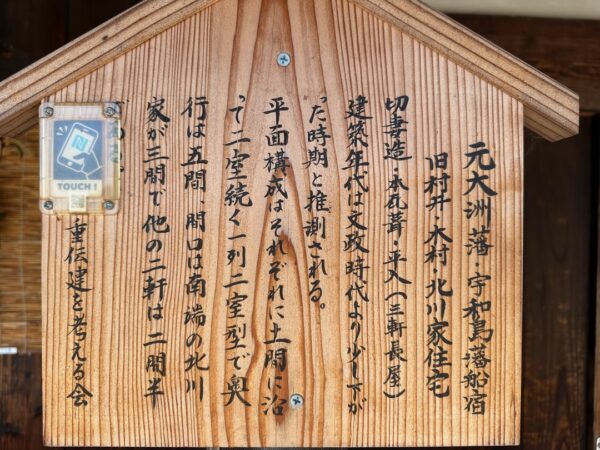 元大洲藩・宇和島藩船宿
旧村井・木村・北川家住宅
切妻造・本瓦葺・平入(三軒長屋)
建築年代は文政時代より少し下が
った時期と推測される。
平面構成はそれぞれに土間に沿
って二室続く一列二室型で奥
行は五間、間口は南端の北川
家が三間で他の二軒は二間半
である。
重伝建を考える会
TOUCH!